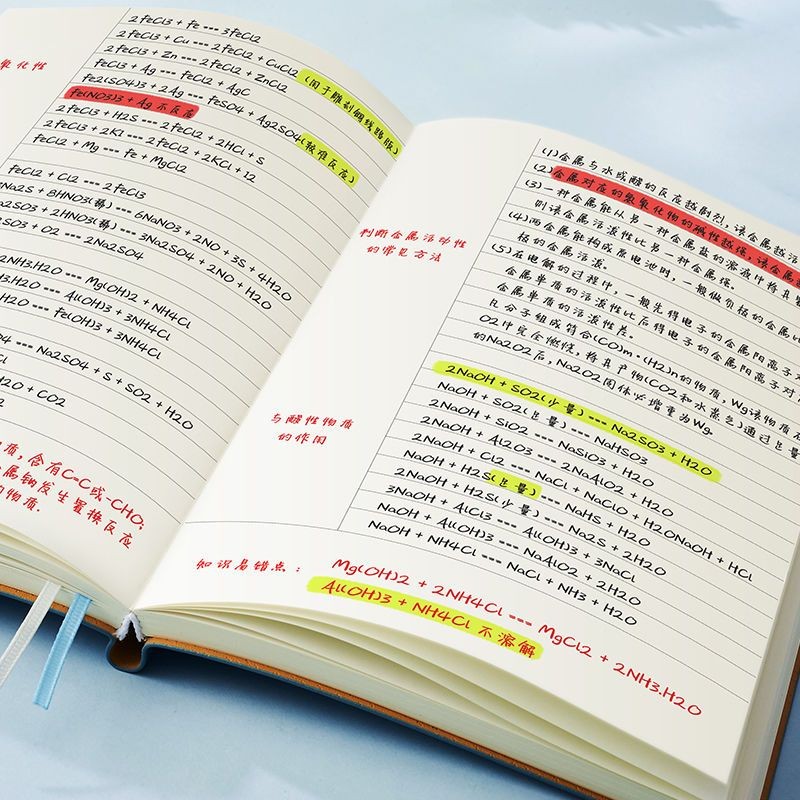 氧化性
2FeCl3 + Fe === 3FeCl2
2FeCl3 + Cu === 2FeCl2 + CuCl2 (用于雕刻铜线路版)
2FeCl3 + Zn === 2FeCl2 + ZnCl2
FeCl3 + Ag === FeCl2 + AgC
Fe2(SO4)3 + 2Ag === FeSO4 + Ag2SO4 (较难反应)
Fe(NO3)3 + Ag 不反应
2FeCl3 + H2S === 2FeCl2 + 2HCl + S
2FeCl3 + 2KI === 2FeCl2 + 2KCl + I2
FeCl2 + Mg === Fe + MgCl2
FeCl2 + Cl2 === 2FeCl3
Na2S + 8HNO3(稀) === 6NaNO3 + 2NO + 3S + 4H2O
2SO3 + 2HNO3(稀) === 3Na2SO4 + 2NO + H2O
2SO3 + O2 === 2Na2SO4
2NH3.H2O === Mg(OH)2 + NH4Cl
NH3.H2O === Al(OH)3 + 3NH4Cl
H3.H2O === Fe(OH)3 + 3NH4Cl
=== Na2SO4 + S + SO2 + H2O
2O + CO2
2O
质,含有C=C或-CHO;
属钠发生置换反应
物质.
判断金属活动性
的常见方法
(1)金属与水或酸的反应越剧烈,该金属越活
(2)金属对应的氢氧化物的碱性越强,该金属
(3)一种金属能从另一种金属盐的溶液中将其
则该金属活泼性比另一种金属强。
(4)两金属能构成原电池时,一般做负极的金属比
极的金属活泼。
(5)在电解的过程中,一般先得电子的金属阳离子对
金属单质的活泼性比后得电子的金属阳离子对应
金属单质的活泼性差。
凡分子组成符合(CO)m·(H2)n的物质,Wg该物质在
O2中完全燃烧,将其产物(CO2和水蒸气)通过足量
的Na2O2后,Na2O2固体必增重为Wg.
与酸性物质
的作用
2NaOH + SO2(少量) === Na2SO3 + H2O
NaOH + SO2(足量) === NaHSO3
2NaOH + SiO2 === NaSiO3 + H2O
2NaOH + Al2O3 === 2NaAlO2 + H2O
2NaOH + Cl2 === NaCl + NaClO + H2ONaOH + HCl
NaOH + H2S(足量) === NaHS + H2O
2NaOH + H2S(少量) === Na2S + 2H2O
3NaOH + AlCl3 === Al(OH)3 + 3NaCl
NaOH + Al(OH)3 === NaAlO2 + 2H2O
NaOH + NH4Cl === NaCl + NH3 + H2O
知识易错点:
Mg(OH)2 + 2NH4Cl === MgCl2 + 2NH3.H2O
Al(OH)3 + NH4Cl 不溶解